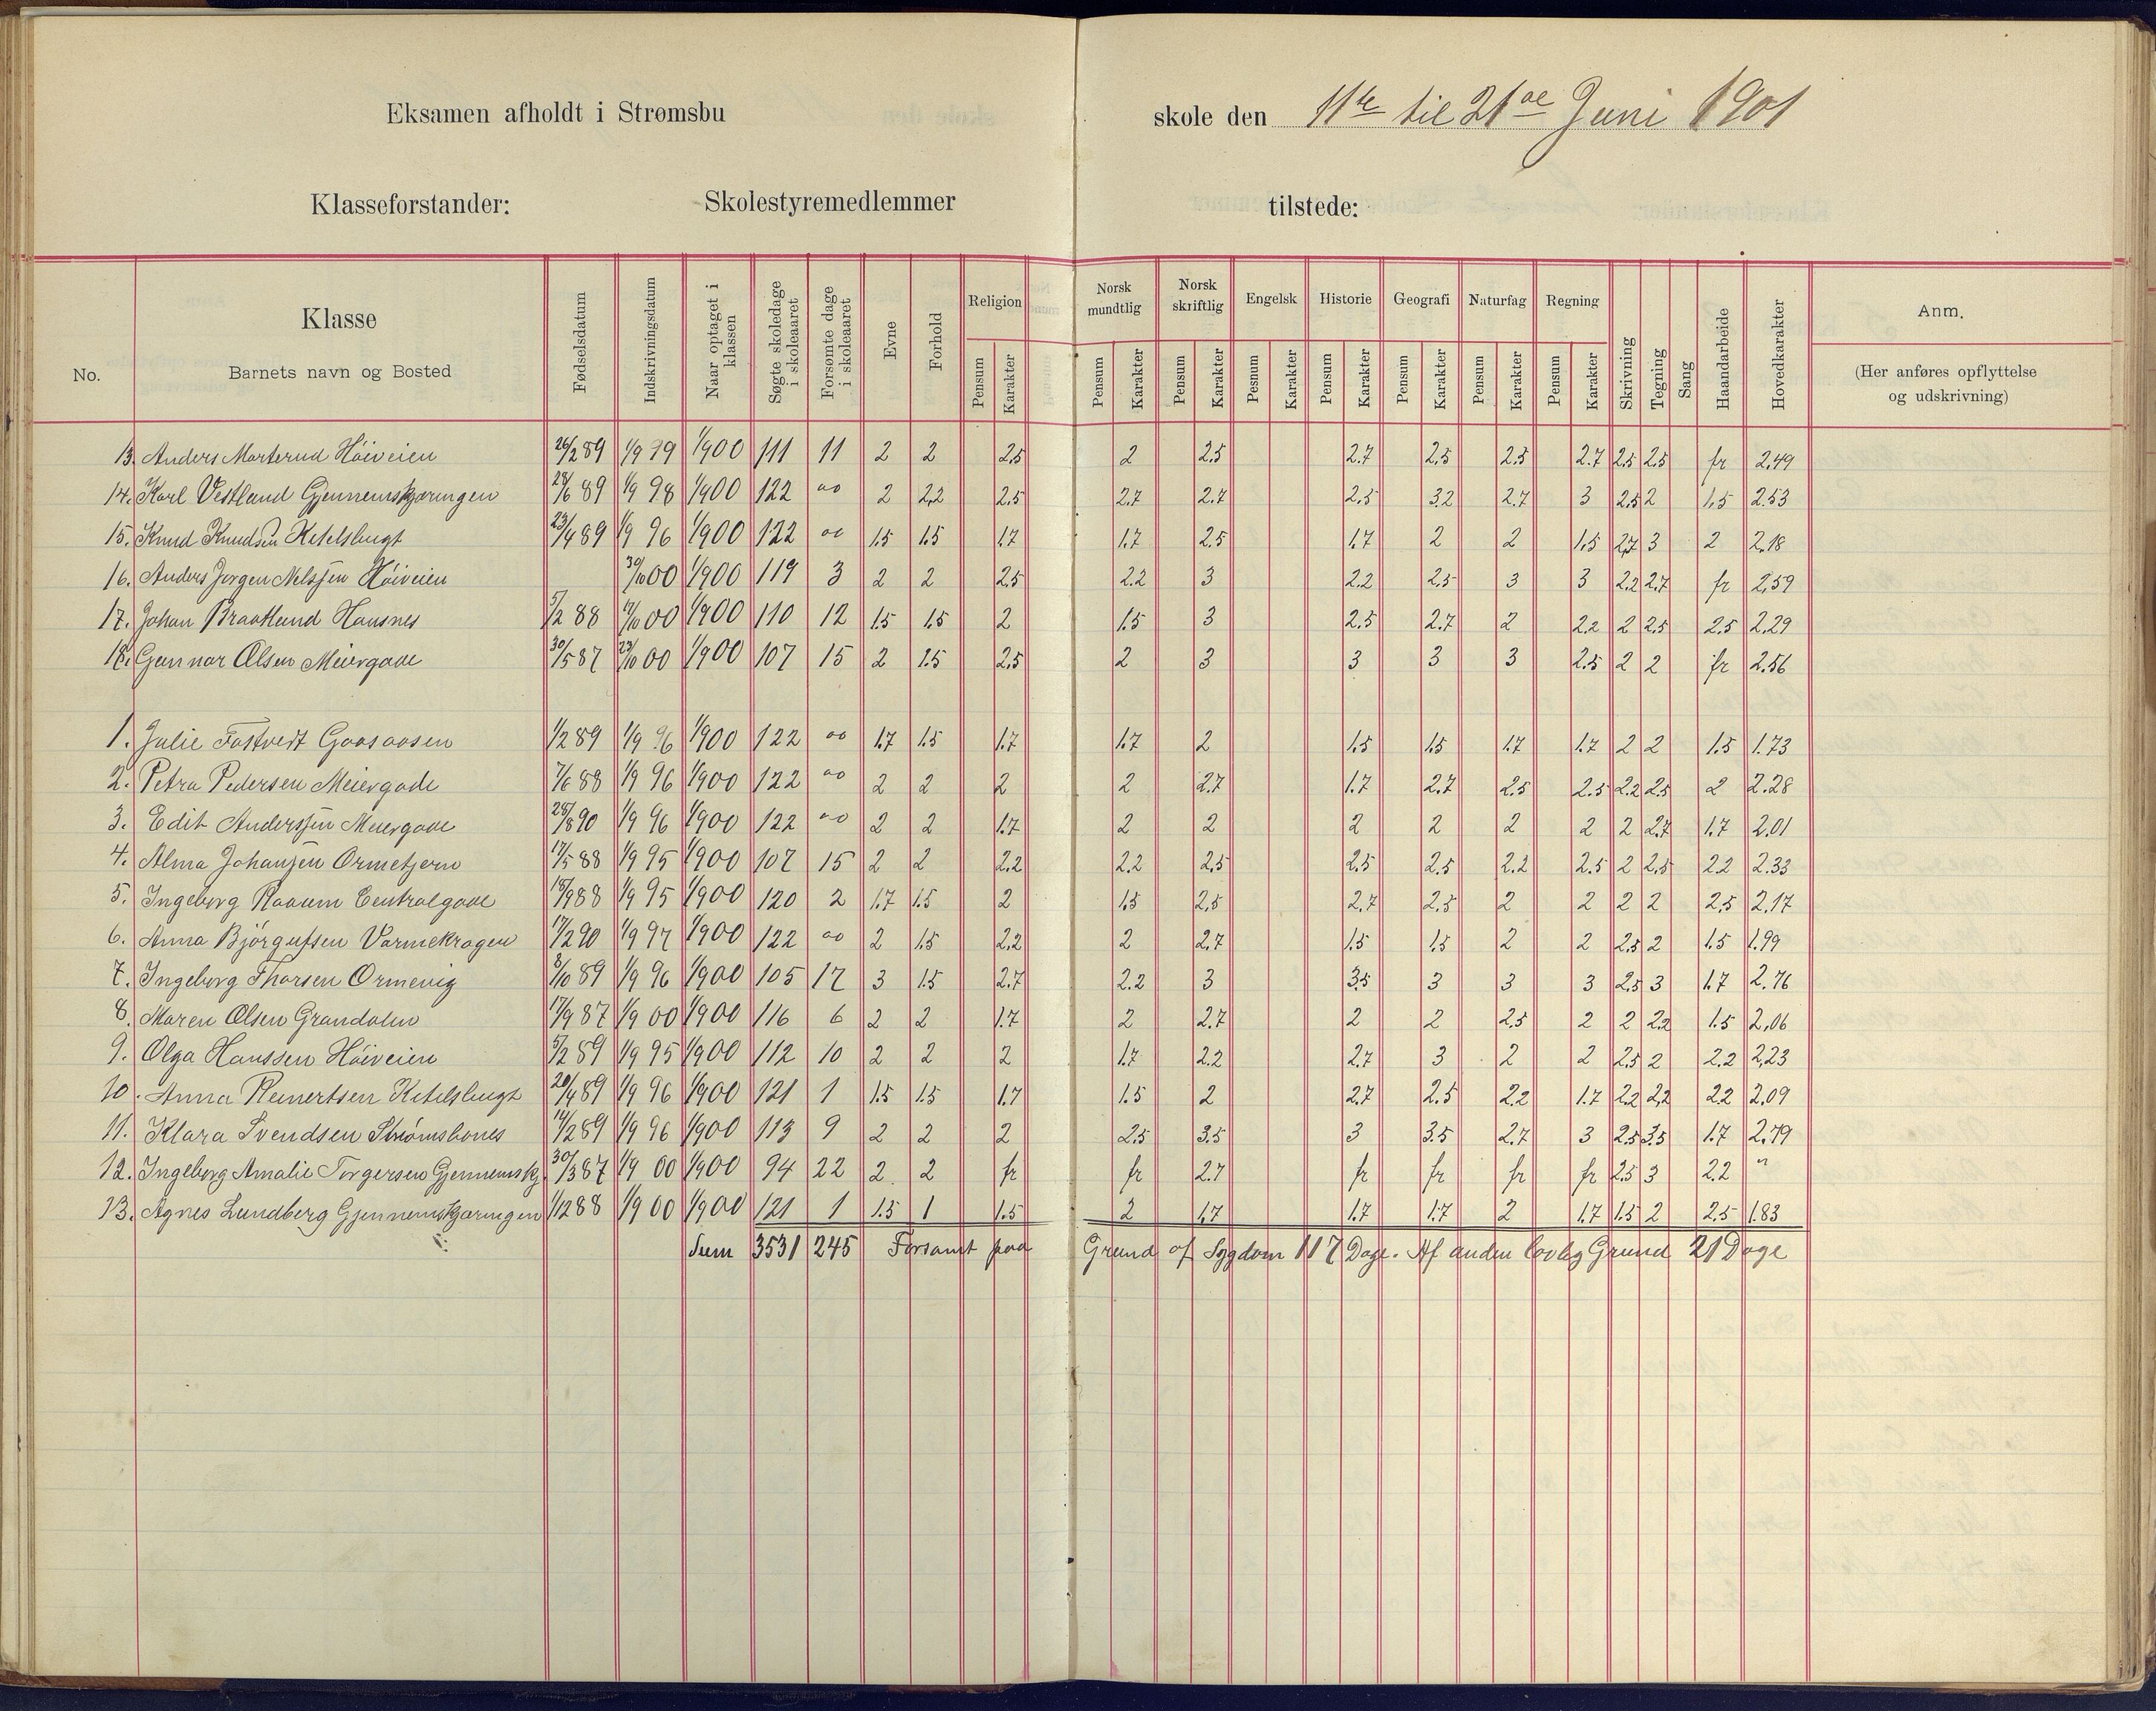 Eksamen afholdt i Strømsbu skole den 11te til 21de Juni 1901
Klasseforstander: Skolestyremedlemmer tilstede:
No. Klasse Barnets navn og Bosted Fødselsdatum Indskrivningsdatum Naar optaget i klassen Søgte skoledage i skoleaaret Forsømte dage i skoleaaret Evne Forhold Religion Norsk mundtlig Norsk skriftlig Engelsk Historie Geografi Naturfag Regning Skrivning Tegning Sang Haandarbeide Hovedkarakter Anm.
Pensum Karakter Pensum Karakter Pensum Karakter Pesnum Karakter Pensum Karakter Pensum Karakter Pensum Karakter Pensum Karakter (Her anføres opflyttelse og udskrivning)
13. Anders Marterud Höiveien 26/2 89 1/9 99 1/9 00 111 11 2 2 2,5 2 2.5 2.7 2,5 2.5 2.7 2.5 2.5 fr 2,49
14. Karl Vestland Gjennemskjæringen 28/6 89 1/9 98 1/9 00 122 " 2 2,2 2,5 2,7 2.7 2.5 3.2 2.7 3 2,5 2 1,5 2.53
15. Knud Knudsen Ketelsbugt 23/4 89 1/9 96 1/9 00 122 " 1.5 1.5 1.7 1.7 2.5 1.7 2 2 1.5 2,7 3 2 2.18
16. Anders Jørgen Nelssen Höiveien 30/10 00 1/9 00 119 3 2 2 2,5 2.2 3 2.2 2,5 3 3 2.2 2.7 fr 2,59
17. Johan Braatlund Hausnes 5/2 88 17/10 00 1/9 00 110 12 1.5 1.5 2 1.5 3 2.5 2.7 2 2.2 2 2.5 2.5 2.29
18. Gunnar Olsen Meiergade 30/5 87 23/10 00 1/9 00 107 15 2 1.5 2,5 2 3 3 3 3 2.5 2 2 fr 2.56
1. Julie Fastvedt Gaasaasen 1/2 89 1/9 96 1/9 00 122 " 1.7 1.5 1.7 1.7 2 1.5 1.5 1.7 1.7 2 2 1.5 1.73
2. Petra Pedersen Meiergade 7/6 88 1/9 96 1/9 00 122 " 2 2 2 2 2.7 1.7 2.7 2.5 2.5 2.2 2.5 2 2.28
3. Edit Anderssen Meiergade 28/8 90 1/9 96 1/9 00 122 " 2 2 1.7 2 2 2 2 2 2 2 2.7 1.7 2.01
4. Alma Johansen Ormetjern 17/5 88 1/9 95 1/9 00 107 15 2 2 2,2 2.2 2,5 2.5 2.5 2.2 2.5 2 2,5 2.2 2.33
5. Ingeborg Raaum Centralgade 18/9 88 1/9 95 1/9 00 120 2 1.7 1.5 2 1.5 2,5 2.7 2.5 2 2 2 2 2,5 2.17
6. Anna Björgufsen Varmekrogen 17/2 90 1/9 97 1/9 00 122 " 2 1.5 2,2 2 2.7 1.5 1.5 2 2 2.5 2 1.5 1.99
7. Ingeborg Thorsen Ormevig 8/10 89 1/9 96 1/9 00 105 17 3 1.5 2.7 2.2 3 3.5 3 3 3 2,5 3 1.7 2.76
8. Maren Olsen Grandalen 17/9 87 1/9 00 1/9 00 116 6 2 2 1.7 2 2.7 2 2 2.5 2 2 2.2 1.5 2,06
9. Olga Hanssen Höiveien 5/2 89 1/9 95 1/9 00 112 10 2 2 2 1.7 2.2 2.7 3 2 2 2.5 2 2.2 2,23
10. Anna Reinertsen Ketelsbugt 20/4 89 1/9 96 1/9 00 121 1 1.5 1.5 1.7 1.5 2 2.7 2.5 2.2 1.7 2.2 2,2 2.2 2.09
11. Klara Svendsen Strömsbones 14/2 89 1/9 96 1/9 00 113 9 2 2 2 2.5 3.5 3 3.5 2.7 3 2.5 3.5 1.7 2,79
12. Ingeborg Amalie Torgersen Gjennemskj. 30/3 87 1/9 00 1/9 00 94 22 2 2 fr fr 2.7 fr fr fr fr 2.5 3 2.2 "
13. Agnes Lundberg Gjennemskjæringen 1/12 88 1/9 00 1/9 00 121 1 1.5 1 1.5 2 1,7 1.7 1.7 2 1.7 1.5 2 2.5 1.83
Sum 3531 245 Forsømt paa Grund af Sygdom 117 Dage. Af anden lovlig Grund 21 Dage